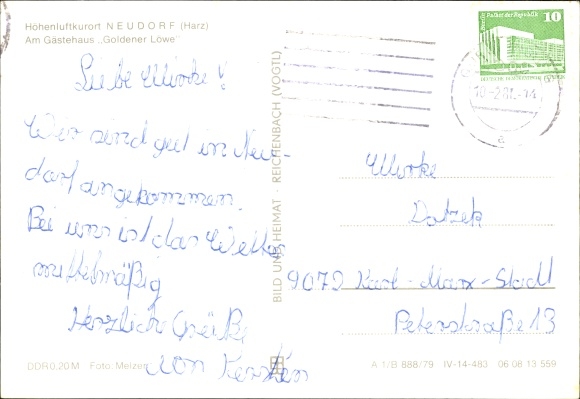 Höhenluftkurort NEUDORF (Harz)
Am Gästehaus „Goldener Löwe"
Liebe Ulrike!
Wir sind gut in Neu-
dorf angekommen.
Bei uns ist das Wetter
mittelmäßig
Herzliche Grüße
von Kerstin
DDR 0,20 M Foto: Melzer
BILD UND HEIMAT · REICHENBACH (VOGTL)
Palast der Republik
10
Ulrike
Datzek
9072 Karl-Marx-Stadt
Peterstraße 13
A 1/B 888/79 IV-14-483 06 08 13 559